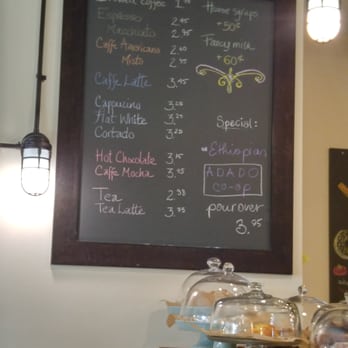 coffee
House syrups
+50¢
Espresso 2.65
Macchiato 2.95
Fancy milk
+60¢
Caffe Americano 2.60
Misto 2.95
Caffe Latte 3.45
Cappucino 3.25
Flat White 3.25
Cortado 3.25
Hot Chocolate 3.15
Caffe Mocha 3.75
Tea 2.38
Tea Latte 3.75
Special:
Ethiopian
ADADO
CO-OP
pourover
3.95